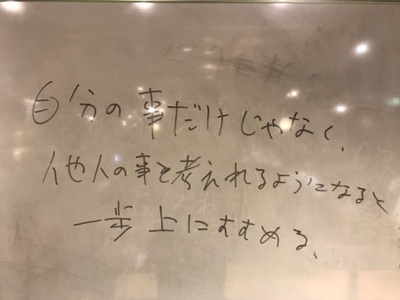 自分の事だけじゃなく、
他人の事を考えれるようになると
一歩上にすすめる、